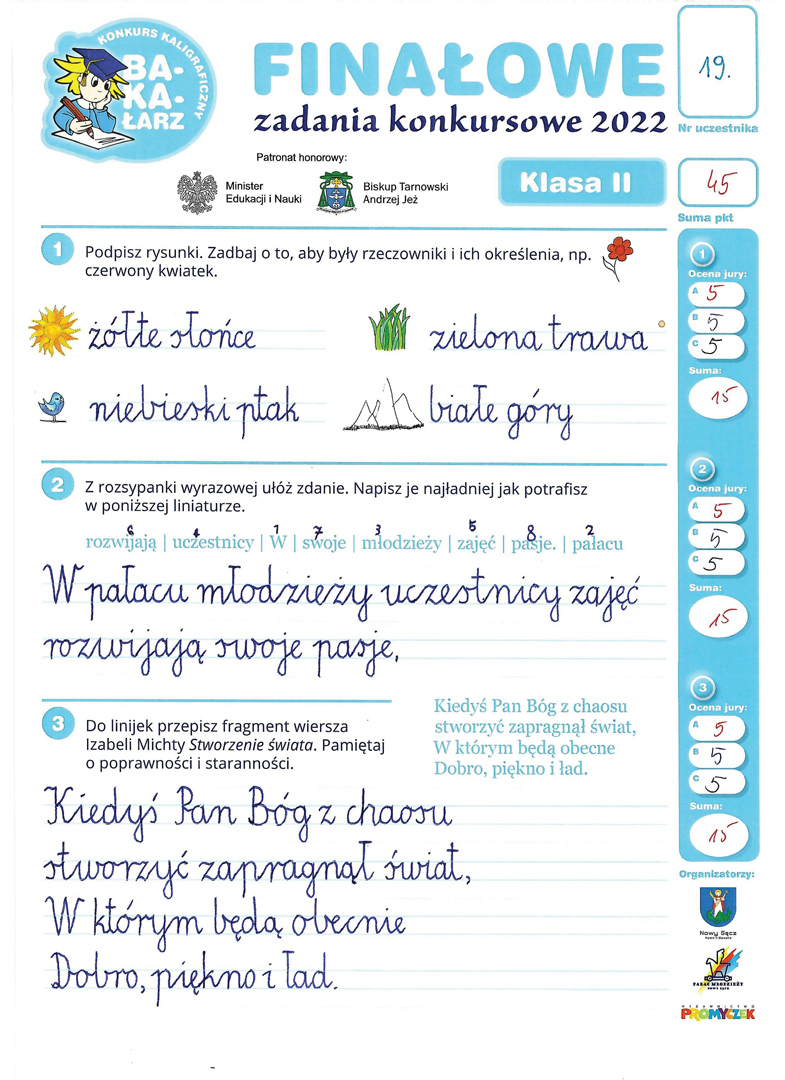 KONKURS KALIGRAFICZNY
BA-
KA-
ŁARZ
FINAŁOWE
zadania konkursowe 2022
19.
Nr uczestnika
Patronat honorowy:
Minister
Edukacji i Nauki
Biskup Tarnowski
Andrzej Jeż
Klasa II
45
Suma pkt
1 Podpisz rysunki. Zadbaj o to, aby były rzeczowniki i ich określenia, np.
czerwony kwiatek.
żółte słońce
zielona trawa
niebieski ptak
białe góry
1
Ocena jury:
A 5
B 5
C 5
Suma:
15
2 Z rozsypanki wyrazowej ułóż zdanie. Napisz je najładniej jak potrafisz
w poniższej liniaturze.
6 4 1 7 3 5 8 2
rozwijają | uczestnicy | W | swoje | młodzieży | zajęć | pasje. | pałacu
W pałacu młodzieży uczestnicy zajęć
rozwijają swoje pasje,
2
Ocena jury:
A 5
B 5
C 5
Suma:
15
3 Do linijek przepisz fragment wiersza
Izabeli Michty Stworzenie świata. Pamiętaj
o poprawności i staranności.
Kiedyś Pan Bóg z chaosu
stworzyć zapragnął świat,
W którym będą obecne
Dobro, piękno i ład.
Kiedyś Pan Bóg z chaosu
stworzyć zapragnął świat,
W którym będą obecnie
Dobro, piękno i ład.
3
Ocena jury:
A 5
B 5
C 5
Suma:
15
Organizatorzy:
Nowy Sącz
PAŁAC MŁODZIEŻY
NOWY SĄCZ
WYDAWNICTWO
PROMYCZEK